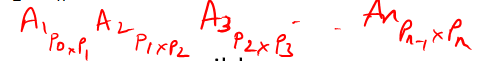 A₁ P₀ₓP₁ A₂ P₁ₓP₂ A₃ P₂ₓP₃ - . Aₙ Pₙ₋₁ₓPₙ